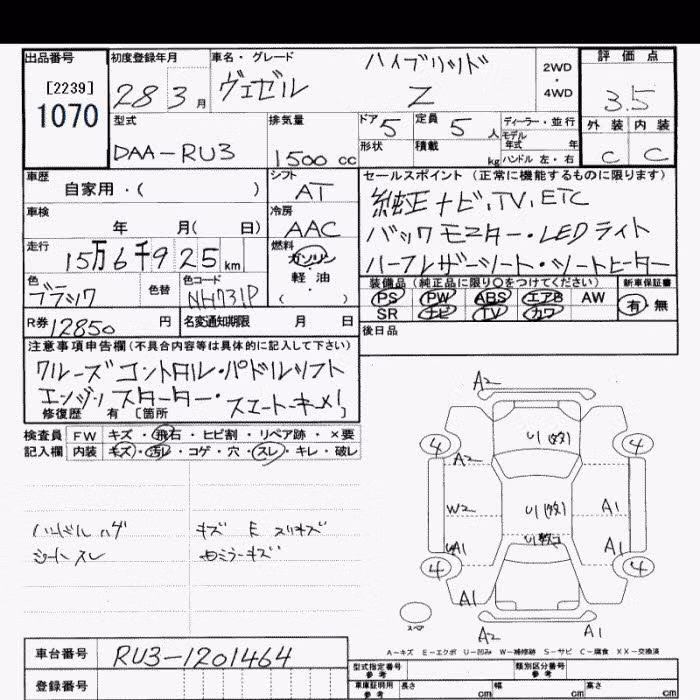 出品番号
[2239]
1070
初度登録年月
28 3月
車名・グレード
ヴェゼル
ハイブリッド
Z
2WD
・
4WD
評価点
3.5
外装 内装
C C
型式
DAA-RU3
排気量
1500 cc
ドア 5
形状
定員 5 人
積載 kg
ディーラー・並行
モデル
年式 年
ハンドル 左・右
車歴
自家用・( )
シフト
AT
車検
年 月( 日)
冷房
AAC
走行
15万6千925km
燃料
ガソリン
・
軽油
( )
色
ブラック
色替
色コード
NH731P
セールスポイント(正常に機能するものに限ります)
純正ナビ,TV,ETC
バックモニター・LEDライト
ハーフレザーシート・シートヒーター
装備品(純正品に限り〇をつけてください)
PS PW ABS エアB AW
SR ナビ TV カワ
新車保証書
有・無
後日品
R券 12850 円
名変通知期限 月 日
注意事項申告欄(不具合内容等は具体的に記入して下さい)
クルーズコントロル・パドルシフト
エンジンスターター・スマートキーメ1
修復歴 有 [箇所 ]
検査員 FW キズ・飛石・ヒビ割・リペア跡・×要
記入欄 内装 キズ・汚レ・コゲ・穴・スレ・キレ・破レ
ハンドルハゲ
シートスレ
キズ E スリキズ
A2
4 4
A2
W2
A1
A1
A1
4 4
A1
A1
A2
A1
スペア
A-キズ E-エクボ U-凹み W-補修跡 S-サビ C-腐食 XX-交換済
車台番号
RU3-1201464
登録番号
型式指定番号
参考
類別区分番号
参考
車庫証明用
参考
長さ cm
幅 cm
高さ cm